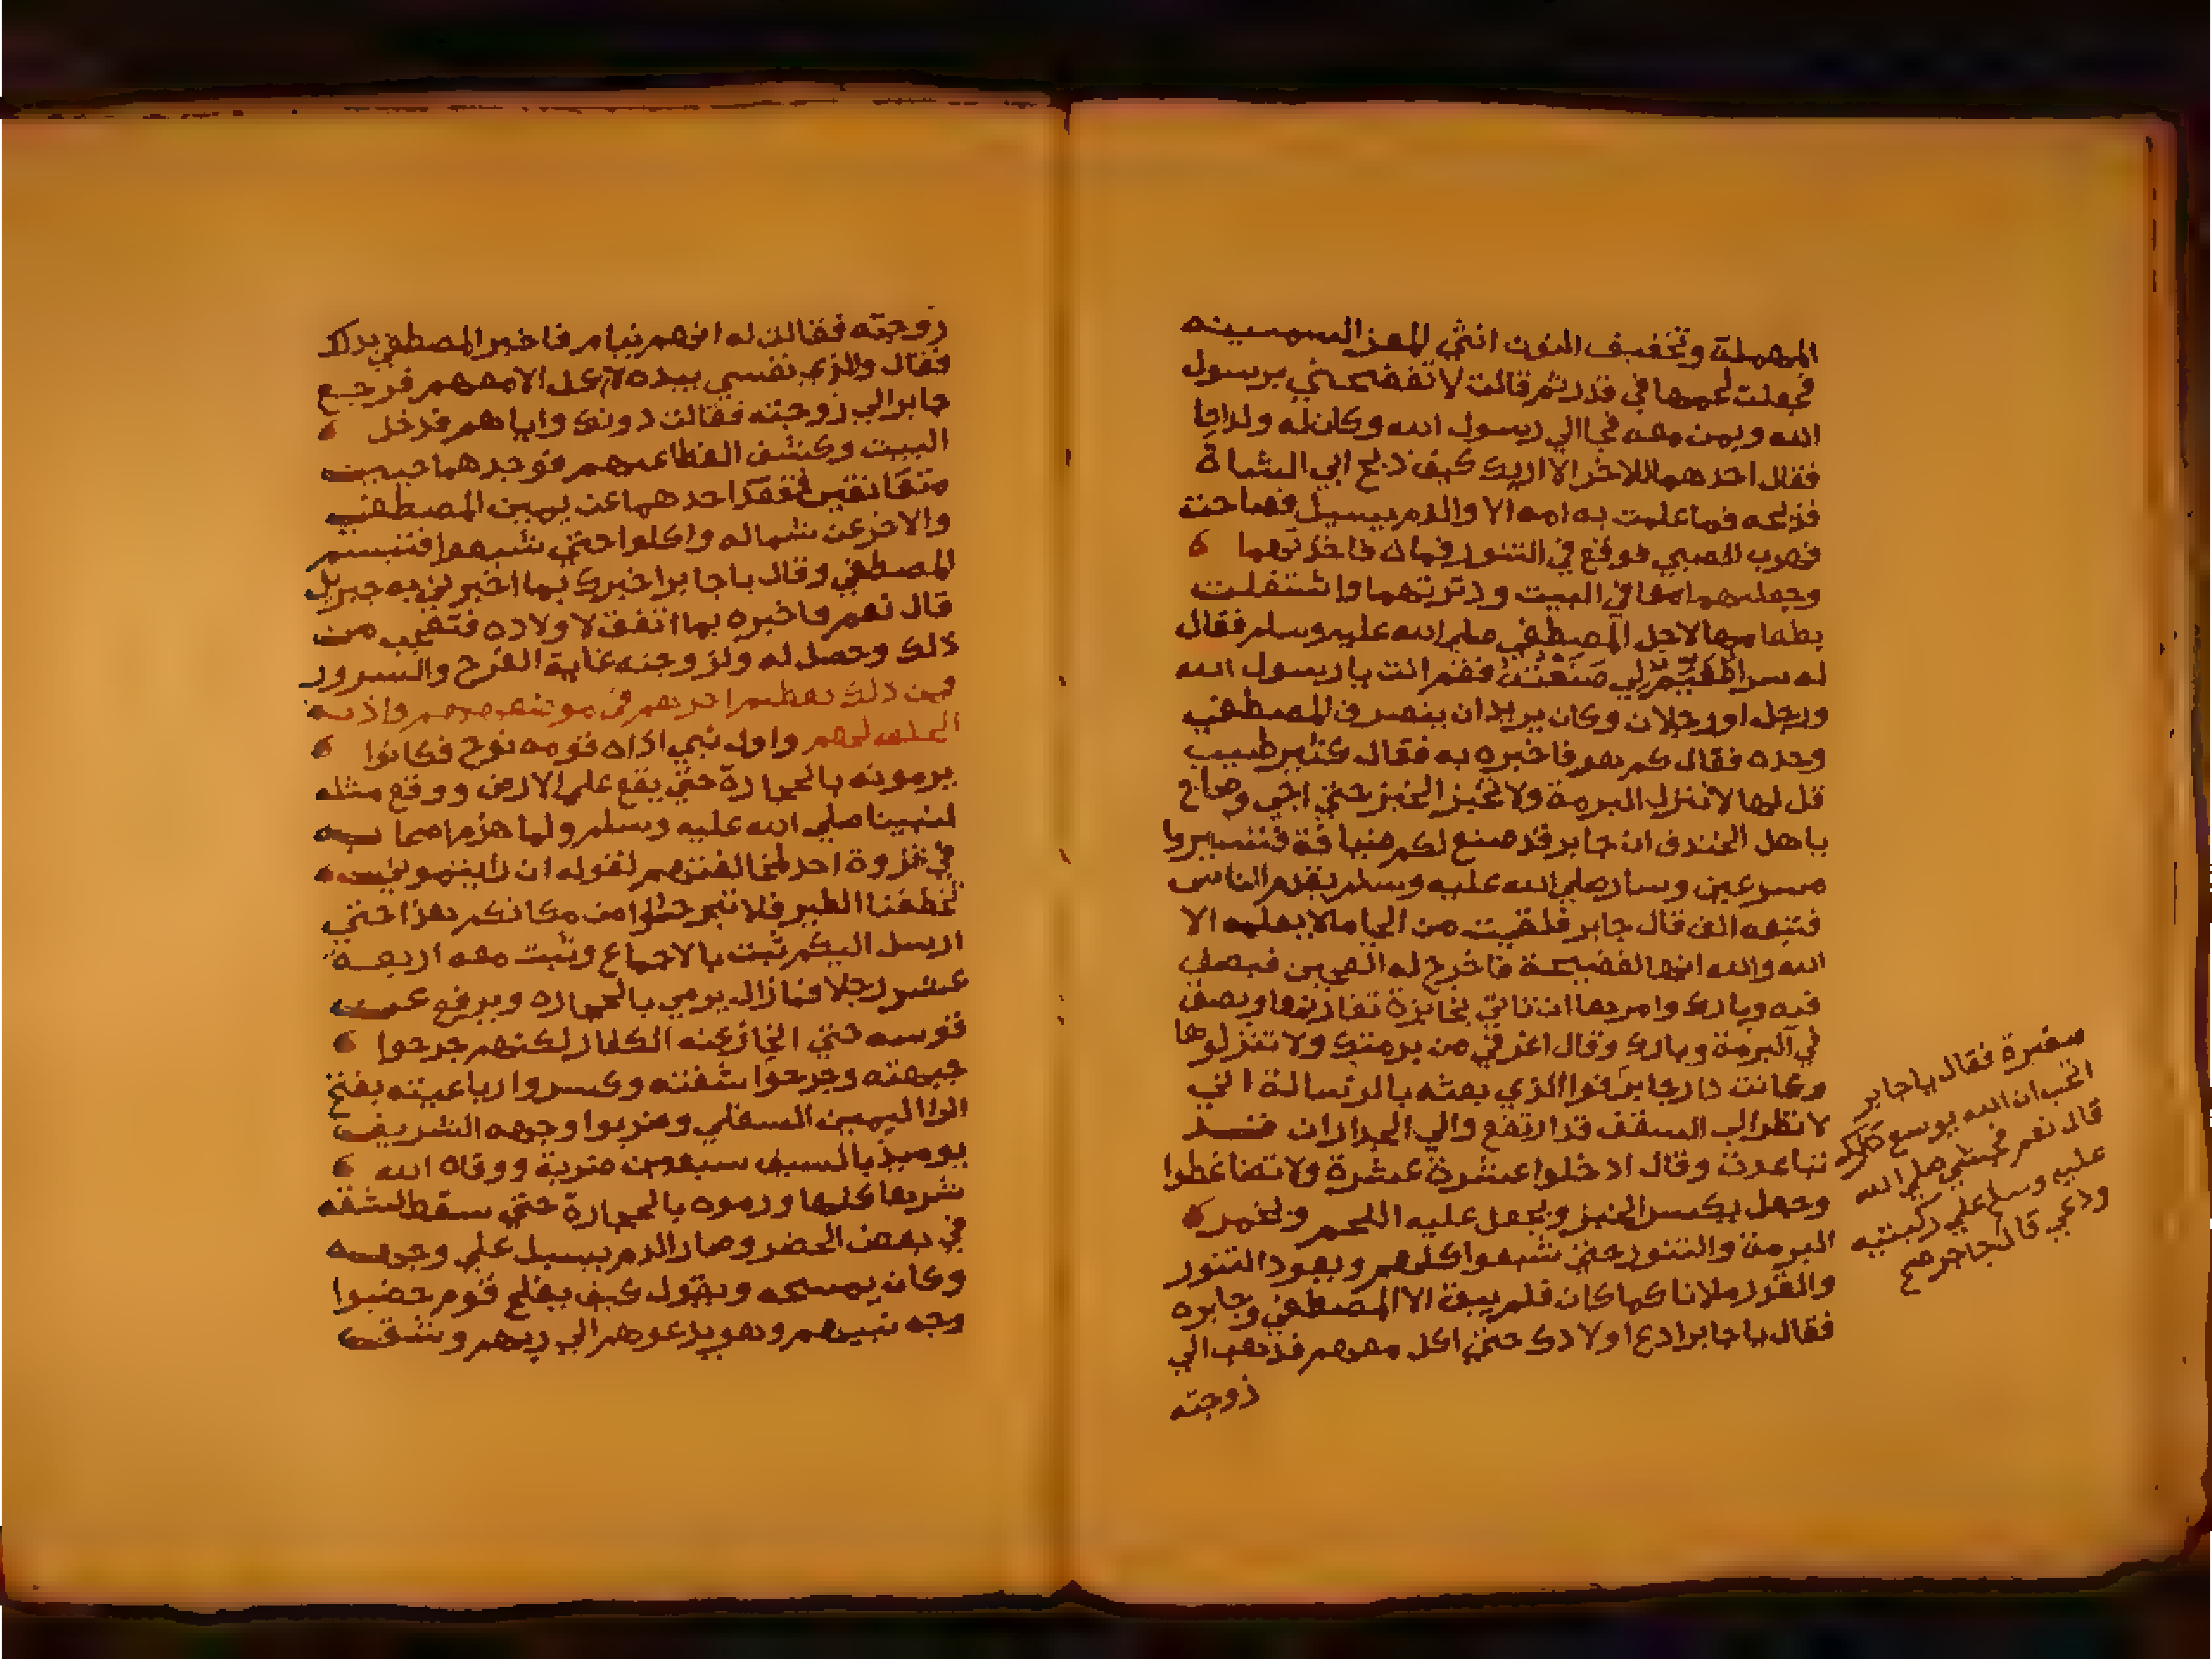 المهملة وتخفيف النون انثي المعز السمينه
فجعلت لحمها في قدر ثم قالت لا تفضحني برسول
الله وبمن معه فجاالي رسول الله وكان له ولدان
فقال احدهما للاخر الا اريك كيف ذبح ابي الشاة
فذبحه فما علمت به امه الا والدم يسيل فصاحت
فهرب الصبي فوقع في التنور فمات فاخذتهما
وجعلتهما معا في البيت ودثرتهما واشتغلت
بطعامها لاجل المصطفي صلي الله عليه وسلم فقال
له سرا طُعَيِّمٌ لي صَنَعْتُهُ فقم انت يا رسول الله
ورجل او رجلان وكان يريد ان ينصرف المصطفي
وحده فقال كم هو فاخبره به فقال كثير طيب
قل لها لا تنزل البرمة ولا تخبز الخبز حتي اجي وصاح
ياهل الخندق ان جابر قد صنع لكم ضيافة فتسيروا
مسرعين وسار صلي الله عليه وسلم يقدم الناس
فتبعه الف قال جابر فلقيت من الحيا مالا يعلمه الا
الله والله انها لفضيحة فاخرج له العجين فبصق
فيه وبارك وامرها ان تاتي بخابزة تغازنها وبصق
في البرمة وبارك وقال اغرفي من برمتك ولا تنزلوها
وكانت دار جابر فوا الذي بعثه بالرسالة اني
لا نظر الي السقف قد ارتفع والي الجدارات قد
تباعدت وقال ادخلوا عشرة عشرة ولا تضاغطوا
وجعل يكسر الخبز ويجعل عليه اللحم ويخمر
البرمة والتنور حتي شبعوا كلهم ويعود التنور
والقدر ملانا كما كان فلم يبق الا المصطفي وجابره
فقال يا جابر ادع اولادك حتي اكل معهم فذهب الي
زوجته
صغيرة فقال يا جابر
اتحب ان الله يوسع دارك
قال نعم فجثي صلي الله
عليه وسلم علي ركبتيه
ودعي قال جابر صح
زوجته فقالت له انهم نيام فاخبر المصطفي بذلك
فقال والذي نفسي بيده لا اكل الا معهم فرجع
جابر الي زوجته فقالت دونك واياهم فدخل
البيت وكشف الغطا عنهم فوجدهما حيين
متعانقين فقعد احدهما عن يمين المصطفي
والاخر عن شماله واكلوا حتي شبعوا فتبسم
المصطفي وقال يا جابر اخبرك بما اخبرني به جبريل
قال نعم فاخبره بما اتفق لاولاده فتعجب من
ذلك وحصل له ولزوجته غاية الفرح والسرور
ومن ذلك تعظيم اجرهم في واذية
الخلق لهم واول نبي اذاه قومه نوح فكانوا
يرمونه بالحجارة حتي يقع علي الارض ووقع مثله
لنبينا صلي الله عليه وسلم ولما هزم اصحابه
في غزوة احد لمخالفتهم لقوله ان رايتموني
تخطفنا الطير فلا تبرحوا من مكانكم هذا حتي
ارسل اليكم ثبت بالاجماع وثبت معه اربعة
عشر رجلا فما زال يرمي بالحجاره ويرفع عن
قوسه حتي انحاز عنه الكفار لكنهم جرحوا
جبهته وجرحوا شفته وكسروا رباعيته بفتح
الرا اليمين السفلي وضربوا وجهه الشريف
يوميذ بالسيف سبعين ضربة ووقاه الله
شرها كلها ورموه بالحجارة حتي سقط لشقه
في بعض الحفر وصار الدم يسيل علي وجهه
وكان يمسحه ويقول كيف يفلح قوم خضبوا
وجه نبيهم وهو يدعوهم الي ربهم وشق